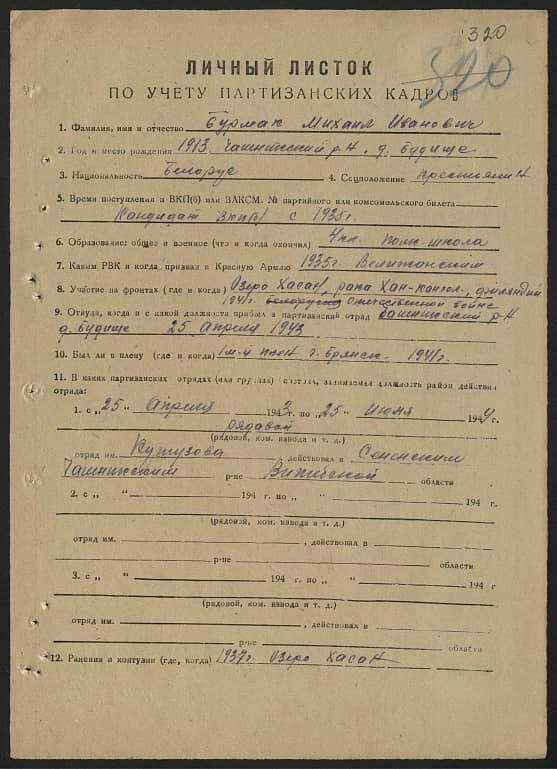 320
320
ЛИЧНЫЙ ЛИСТОК
ПО УЧЕТУ ПАРТИЗАНСКИХ КАДРОВ
1. Фамилия, имя и отчество Бурмак Михаил Иванович
2. Год и место рождения 1913 Чашникский р-н. д. Будище
3. Национальность Белорус 4. Соцположение крестьянин
5. Время поступления в ВКП(б) или ВЛКСМ. № партийного или комсомольского билета
Кандидат ВКП(б) с 1935г.
6. Образование: общее и военное (что и когда окончил) 4кл. полк. школа
7. Каким РВК и когда, призван в Красную Армию 1935г.
8. Участие на фронтах (где и когда) Озеро Хасан, финляндии
1941г. отечественной войне
9. Откуда, когда и с какой должности прибыл в партизанский отряд р-н
д. Будище 25 апреля 1943
10. Был ли в плену (где и когда) плен г. Брянск 1941г.
11. В каких партизанских отрядах (или группах) состоял, занимаемая должность район действия
отряда:
1. с „25" Апреля 1943 г. по „25" Июня 1944 г.
рядовой
(рядовой, ком. взвода и т. д.)
отряд им. Кутузова, действовал в Сененским
Чашникским р-не Витебской области
2. с „ " 194 г. по „ " 194 г.
(рядовой, ком. взвода и т. д.)
отряд им. , действовал в
р-не области
3. с „ " 194 г. по „ " 194 г
(рядовой, ком. взвода и т. д.)
отряд им. , действовал в
р-не области
12. Ранения и контузии (где, когда) 1937г. Озеро Хасан